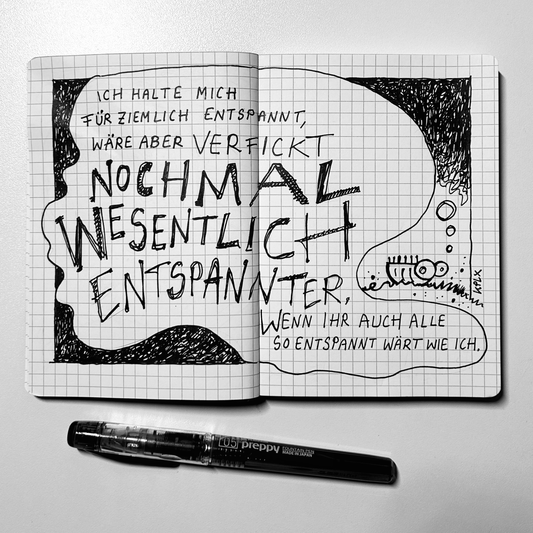 ICH HALTE MICH
FÜR ZIEMLICH ENTSPANNT,
WÄRE ABER VERFICKT
NOCHMAL
WESENTLICH
ENTSPANNTER,
WENN IHR AUCH ALLE
SO ENTSPANNT WÄRT WIE ICH.
05 preppy
MADE IN JAPAN